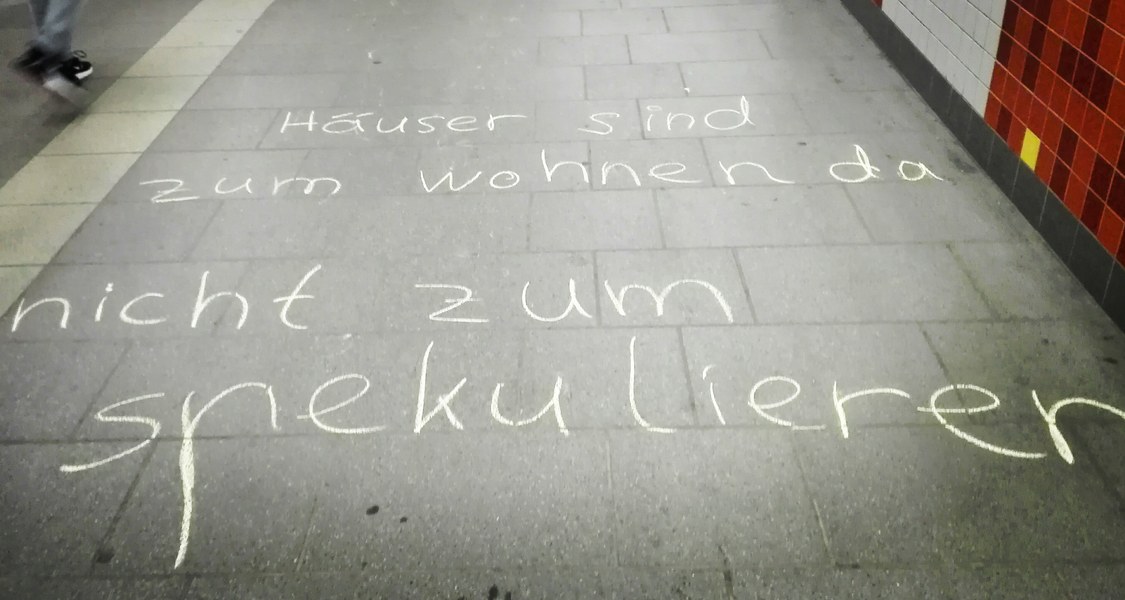 Häuser sind
zum wohnen da
nicht zum
spekulieren